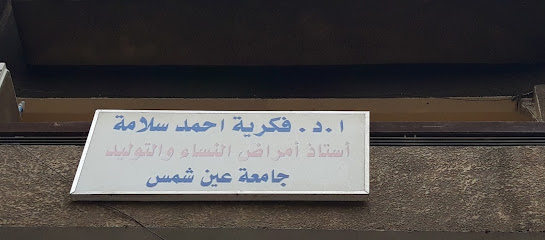 ا.د. فكرية احمد سلامة
أستاذ أمراض النساء والتوليد
جامعة عين شمس